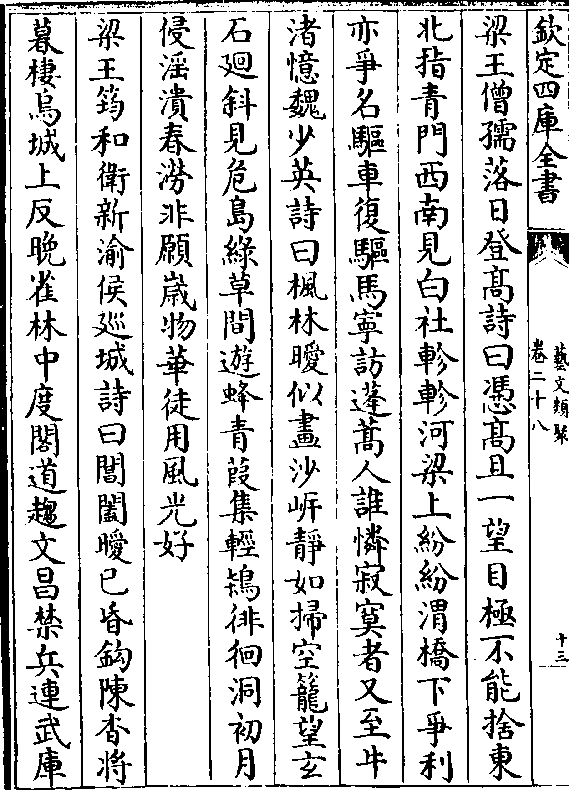 欽定四庫全書
藝文類聚
卷二十八
十三
梁王僧孺落日登髙詩曰憑髙且一望目極不能捨東
北指青門西南見白社軫軫河梁上紛紛渭橋下爭利
亦爭名驅車復驅馬寧訪蓬蒿人誰憐寂寞者又至牛
渚憶魏少英詩曰楓林曖似畫沙岍靜如掃空籠望玄
石廻斜見危島綠草間遊蜂青葭集輕鴇徘徊洞初月
侵淫潰春澇非願嵗物華徒用風光好
梁王筠和衛新渝侯廵城詩曰閶闔曖已昏鈎陳杳將
暮棲烏城上反晚雀林中度閣道趨文昌禁兵連武庫